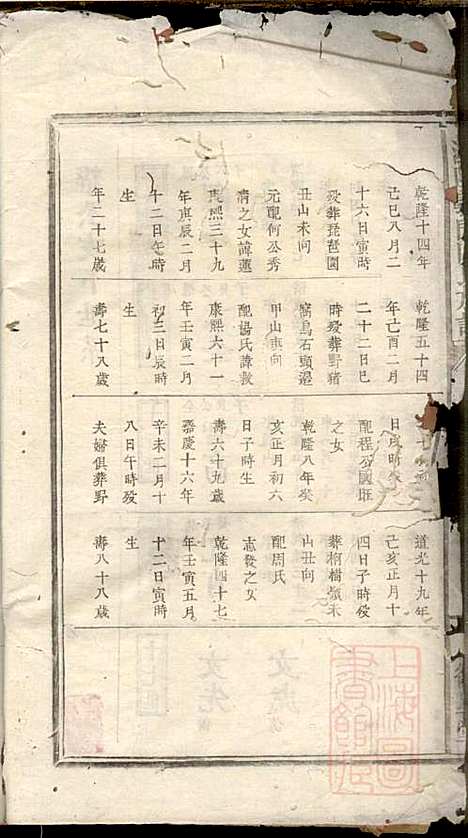 乾隆十四年
己巳八月二
十六日寅時
歿葬琵琶園
丑山未向
元配何公秀
清之女諱蓮
康熙三十九
年庚辰二月
十二日午時
生
年二十七歲
乾隆五十四
年己酉二月
二十二日巳
時歿葬野猪
窩烏石頭邊
甲山庚向
配楊氏諱救
康熙六十一
年壬寅二月
初三日辰時
生
壽七十八歲
日戌時歿
配程公國珽
之女
乾隆八年癸
亥正月初六
日子時生
壽六十九歲
嘉慶十六年
辛未二月十
八日午時歿
夫婦俱葬野
道光十九年
己亥正月十
四日子時歿
葬桐樹嶺未
山丑向
配周氏
志發之女
乾隆四十七
年壬寅五月
十二日寅時
生
壽八十八歲
上海圖書館藏